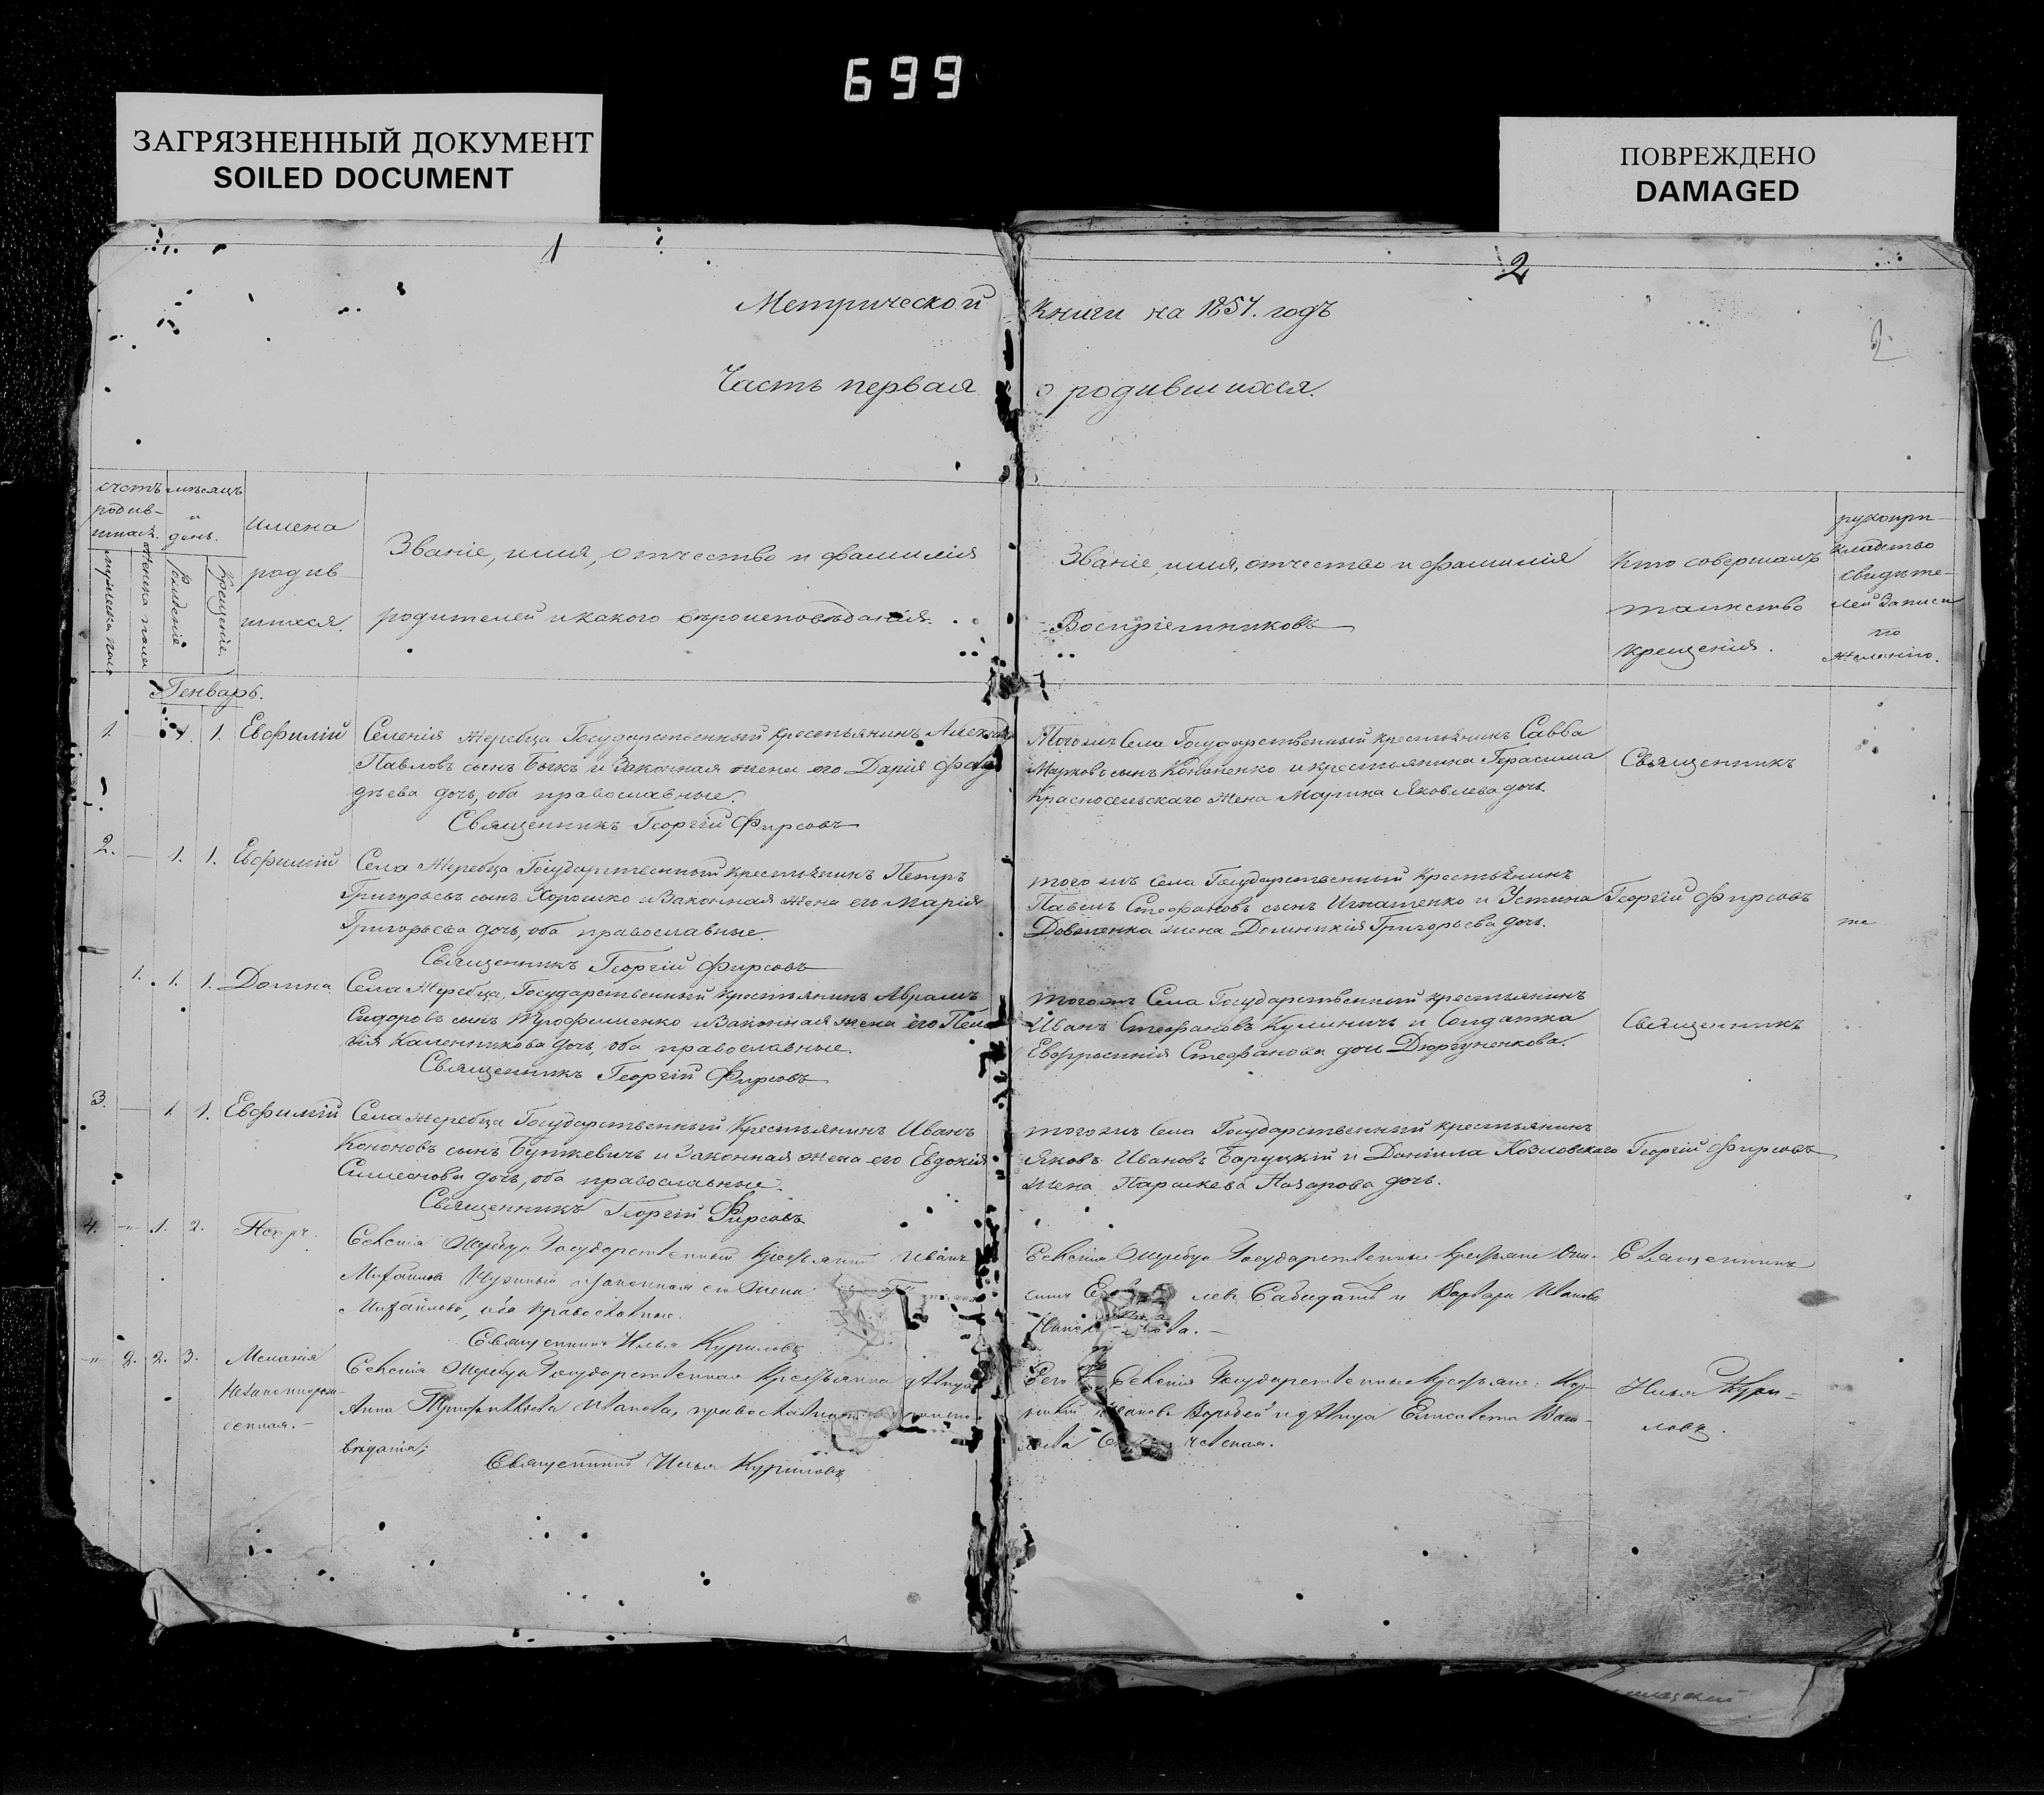 699
ЗАГРЯЗНЕННЫЙ ДОКУМЕНТ
SOILED DOCUMENT
ПОВРЕЖДЕНО
DAMAGED
1
2
2
Метрической Книги на 1857. годъ
Часть первая о родившихся.
счетъ родив-шихся.
мужеска пола
женска пола
мѣсяцъ и день.
Рожденія
Крещенія.
имена родив шихся.
Званіе, имя, отчество и фамилія
родителей и какого вѣроисповѣданія.
Званіе, имя, отчество и фамилія
Воспріемниковъ
Кто совершалъ
таинство
крещенія.
рукопри-
кладство
свидѣте-
лей Записи
по
желанію.
Генварь.
1. 1. Евфимій
Селенія Жеребца Государственный крестьянинъ
Павловъ сынъ Быкъ и Законная жена его Дарія Фад
дѣева дочь, оба православные.
Священникъ Георгій Фирсовъ
Тогожъ Села Государственный крестьянинъ Савва
Марковъ сынъ Кононенко и крестьянина Герасима
Красносельскаго жена Марина Яковлева дочь.
Священникъ
2. 1. 1. Евфимій
Села Жеребца Государственный крестьянинъ Петръ
Григорьевъ сынъ Хорошко и Законная жена его Марія
Григорьева дочь, оба православные.
Священникъ Георгій Фирсовъ
того жъ Села Государственный крестьянинъ
Павелъ Стефановъ сынъ Игнатенко и Устина
Довженка жена Домникія Григорьева дочь.
Георгій Фирсовъ
1. 1. 1. Домна
Села Жеребца, Государственный крестьянинъ Авраамъ
Сидоровъ сынъ Трофименко и Законная жена его Пела
гія Каленникова дочь, оба православные.
Священникъ Георгій Фирсовъ
тогожъ Села Государственный крестьянинъ
Иванъ Стефановъ Куминичъ и Солдатка
Евфросинія Стефанова дочь
Священникъ
3. 1. 1. Евфимій
Села Жеребца Государственный крестьянинъ Иванъ
Кононовъ сынъ Буткевичъ и Законная жена его Евдокія
Симеонова дочь, оба православные.
Священникъ Георгій Фирсовъ
того жъ Села Государственный крестьянинъ
Яковъ Ивановъ Баруцкій и Даніила Козловскаго
жена Параскева Назарова дочь.
Георгій Фирсовъ
4. -"- 1. 2. Петръ.
Селенія Жеребца Государственный крестьянинъ Иванъ
Михайловъ и законная его жена
Михайлова, оба православные.
Священникъ Илья Куриловъ
Селенія Жеребца Государственные крестьяне
и Варвара Иванова
Священникъ
-"- 2. 2. 3. Меланія
Незаконнорож-
денная.-
Селенія Жеребца Государственная крестьянка дѣвица
Анна Иванова, православнаго
вѣданія;
Священникъ Илья Куриловъ
Того Селенія Государственные крестьяне:
Ивановъ Воробей и дѣвица Елисавета
Илья Кури-
ловъ.